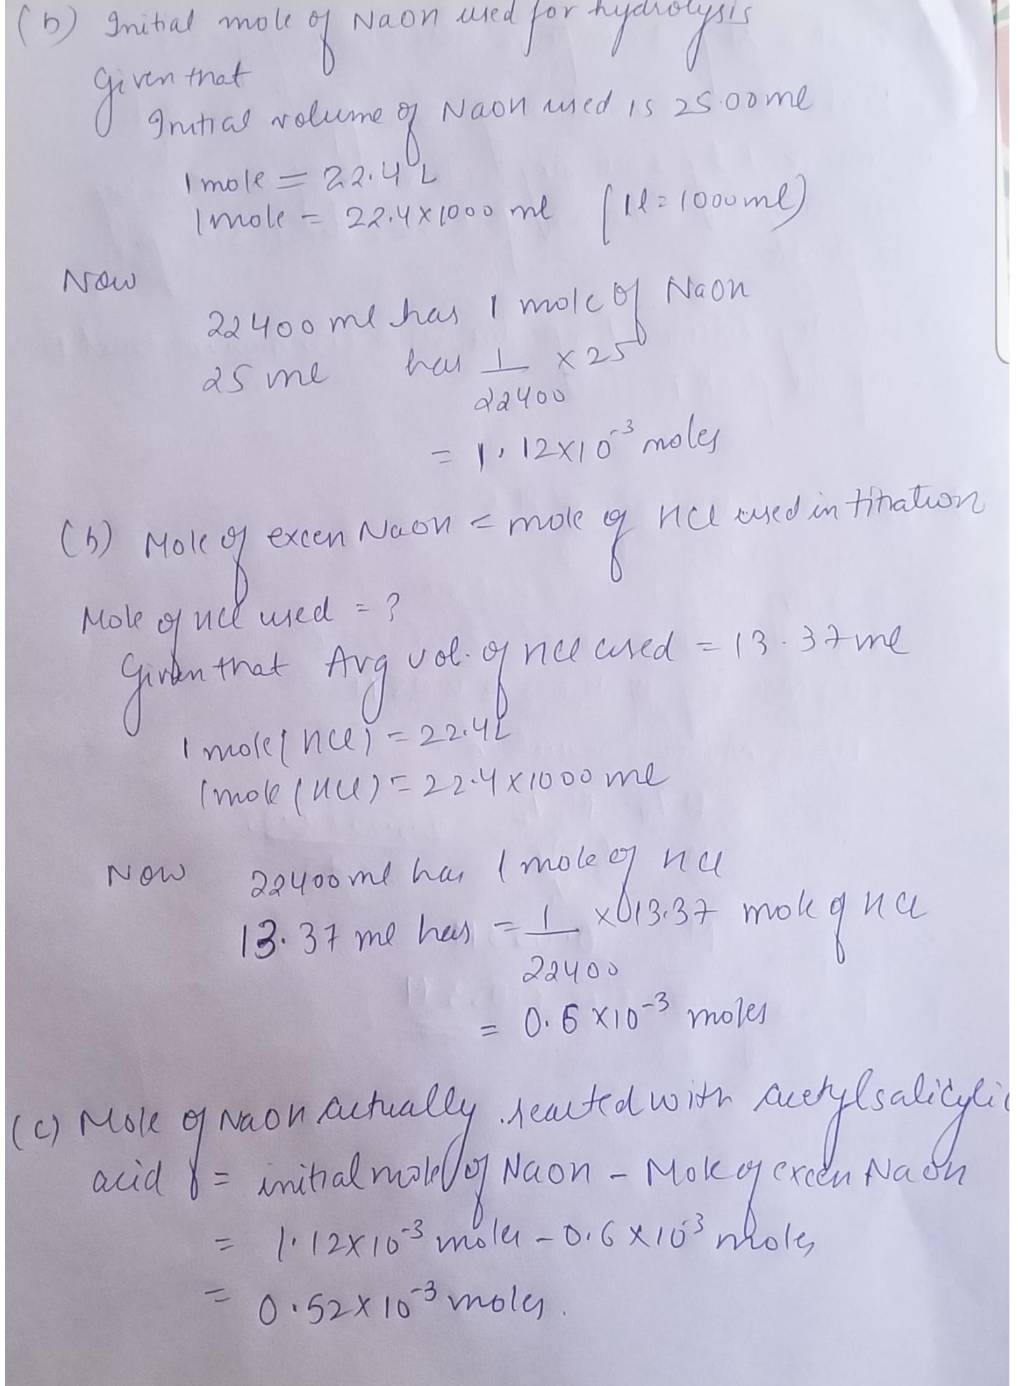 (b) Initial mole of NaOH used for hydrolysis
Given that
Initial volume of NaOH used is 25.00 ml
1 mole = 22.4 L
1 mole = 22.4 x 1000 ml (1l = 1000 ml)
Now
22400 ml has 1 mole of NaOH
25 ml has 1/22400 x 25
= 1.12x10⁻³ moles
(b) Mole of excess NaOH = mole of HCl used in titration
Mole of HCl used = ?
Given that Avg vol. of HCl used = 13.37 ml
1 mole (HCl) = 22.4L
1 mole (HCl) = 22.4 x 1000 ml
Now 22400 ml has 1 mole of HCl
13.37 ml has = 1/22400 x 13.37 mole of HCl
= 0.6 x10⁻³ moles
(c) Mole of NaOH actually reacted with acetylsalicylic
acid = initial mole of NaOH - Mole of excess NaOH
= 1.12x10⁻³ moles - 0.6 x 10⁻³ moles
= 0.52 x 10⁻³ moles.